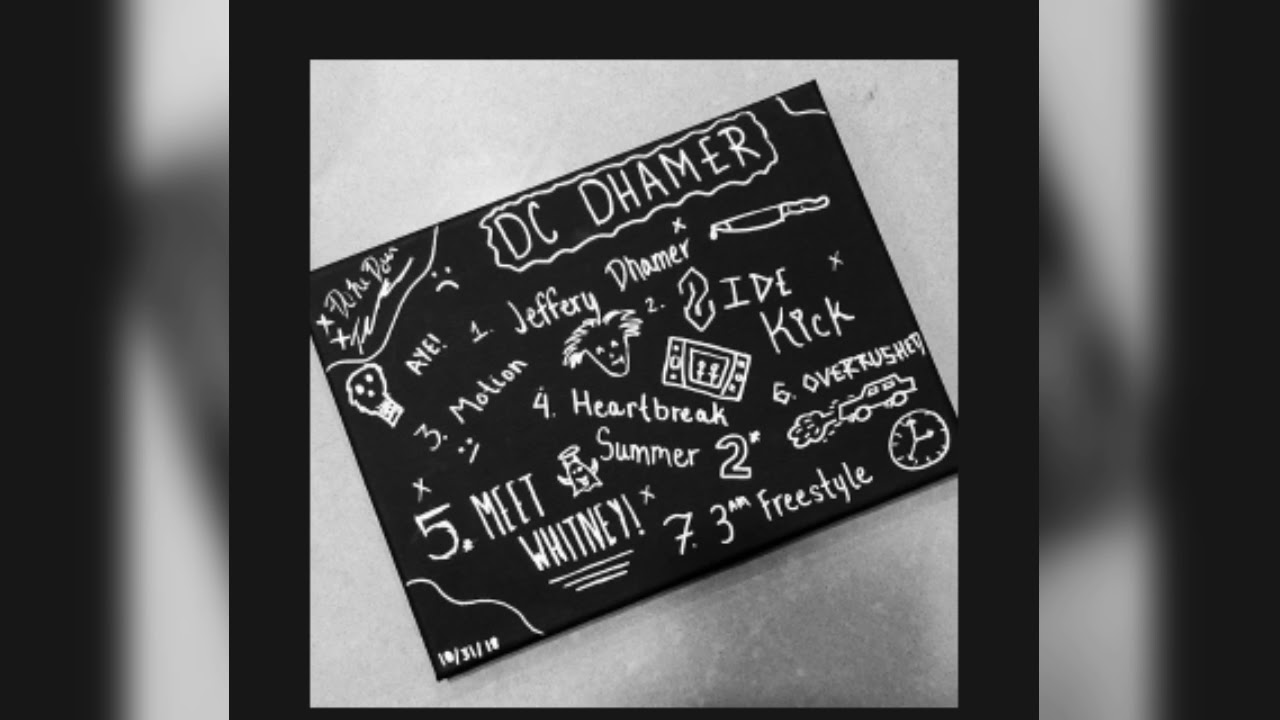 DC DHAMER
AYE!
1. Jeffery Dhamer
2. SIDE
KICK
3. Motion
4. Heartbreak
Summer 2
5. MEET
WHITNEY!
6. OVERRUSHED
7. 3AM Freestyle
10/31/18